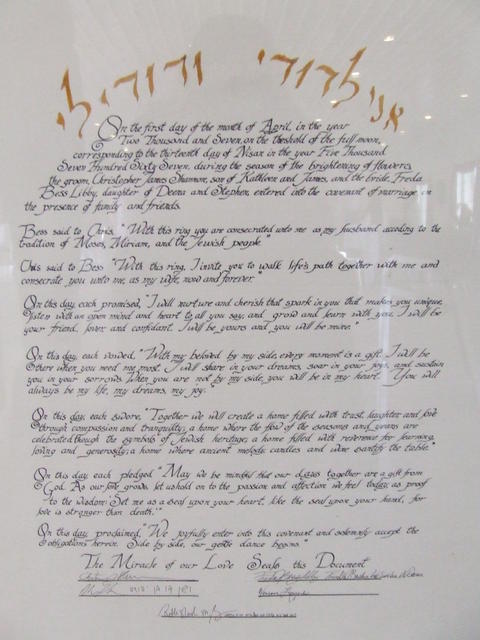 אני לדודי ודודי לי
On the first day of the month of April, in the year
Two Thousand and Seven, on the theshold of the full moon,
corresponding to the thirteenth day of Nisan in the year Five Thousand
Seven Hundred Sixty Seven, during the season of the brightening of flowers,
the groom, Christopher James Shannon, son of Kathleen and James, and the bride, Freda
Bess Libby, daughter of Deena and Stephen, entered into the covenant of marriage in
the presence of family and friends.
Bess said to Chris, "With this ring you are consecrated unto me as my husband accoding to the
tradition of Moses, Miriam, and the Jewish people"
Chris said to Bess "With this ring, I invite you to walk life's path together with me and
consecrate you unto me, as my wife, now and forever."
On this day, each promised, "I will nurture and cherish that spark in you that makes you unique,
listen with an open mind and heart to all you say, and grow and learn with you. I will be
your friend, lover, and confidant. I will be yours and you will be mine."
On this day, each vowed, "With my beloved by my side, every moment is a gift. I will be
there when you need me most. I will share in your dreams, soar in your joys, and sustain
you in your sorrows. When you are not by my side, you will be in my heart. You will
always be my life, my dreams, my joy."
On this day, each swore, "Together we will create a home filled with trust, laughter, and love
through compassion and tranquility; a home where the flow of the seasons and years are
celebrated though the symbols of Jewish heritage; a home filled with reverence for learning,
loving and generosity; a home where ancient melodic candles and wine sanctify the table."
On this day each pledged "May we be mindful that our days together are a gift from
God. As our love grows, let us hold on to the passion and affection we feel today, as proof
to the wisdom: Set me as a seal upon your heart, like the seal upon your hand, for
love is stronger than death.'"
On this day, proclaimed, "We joyfully enter into this covenant and solemnly accept the
obligations herein. Side by side, our gentle dance begins."
The Miracle of our Love Seals this Document